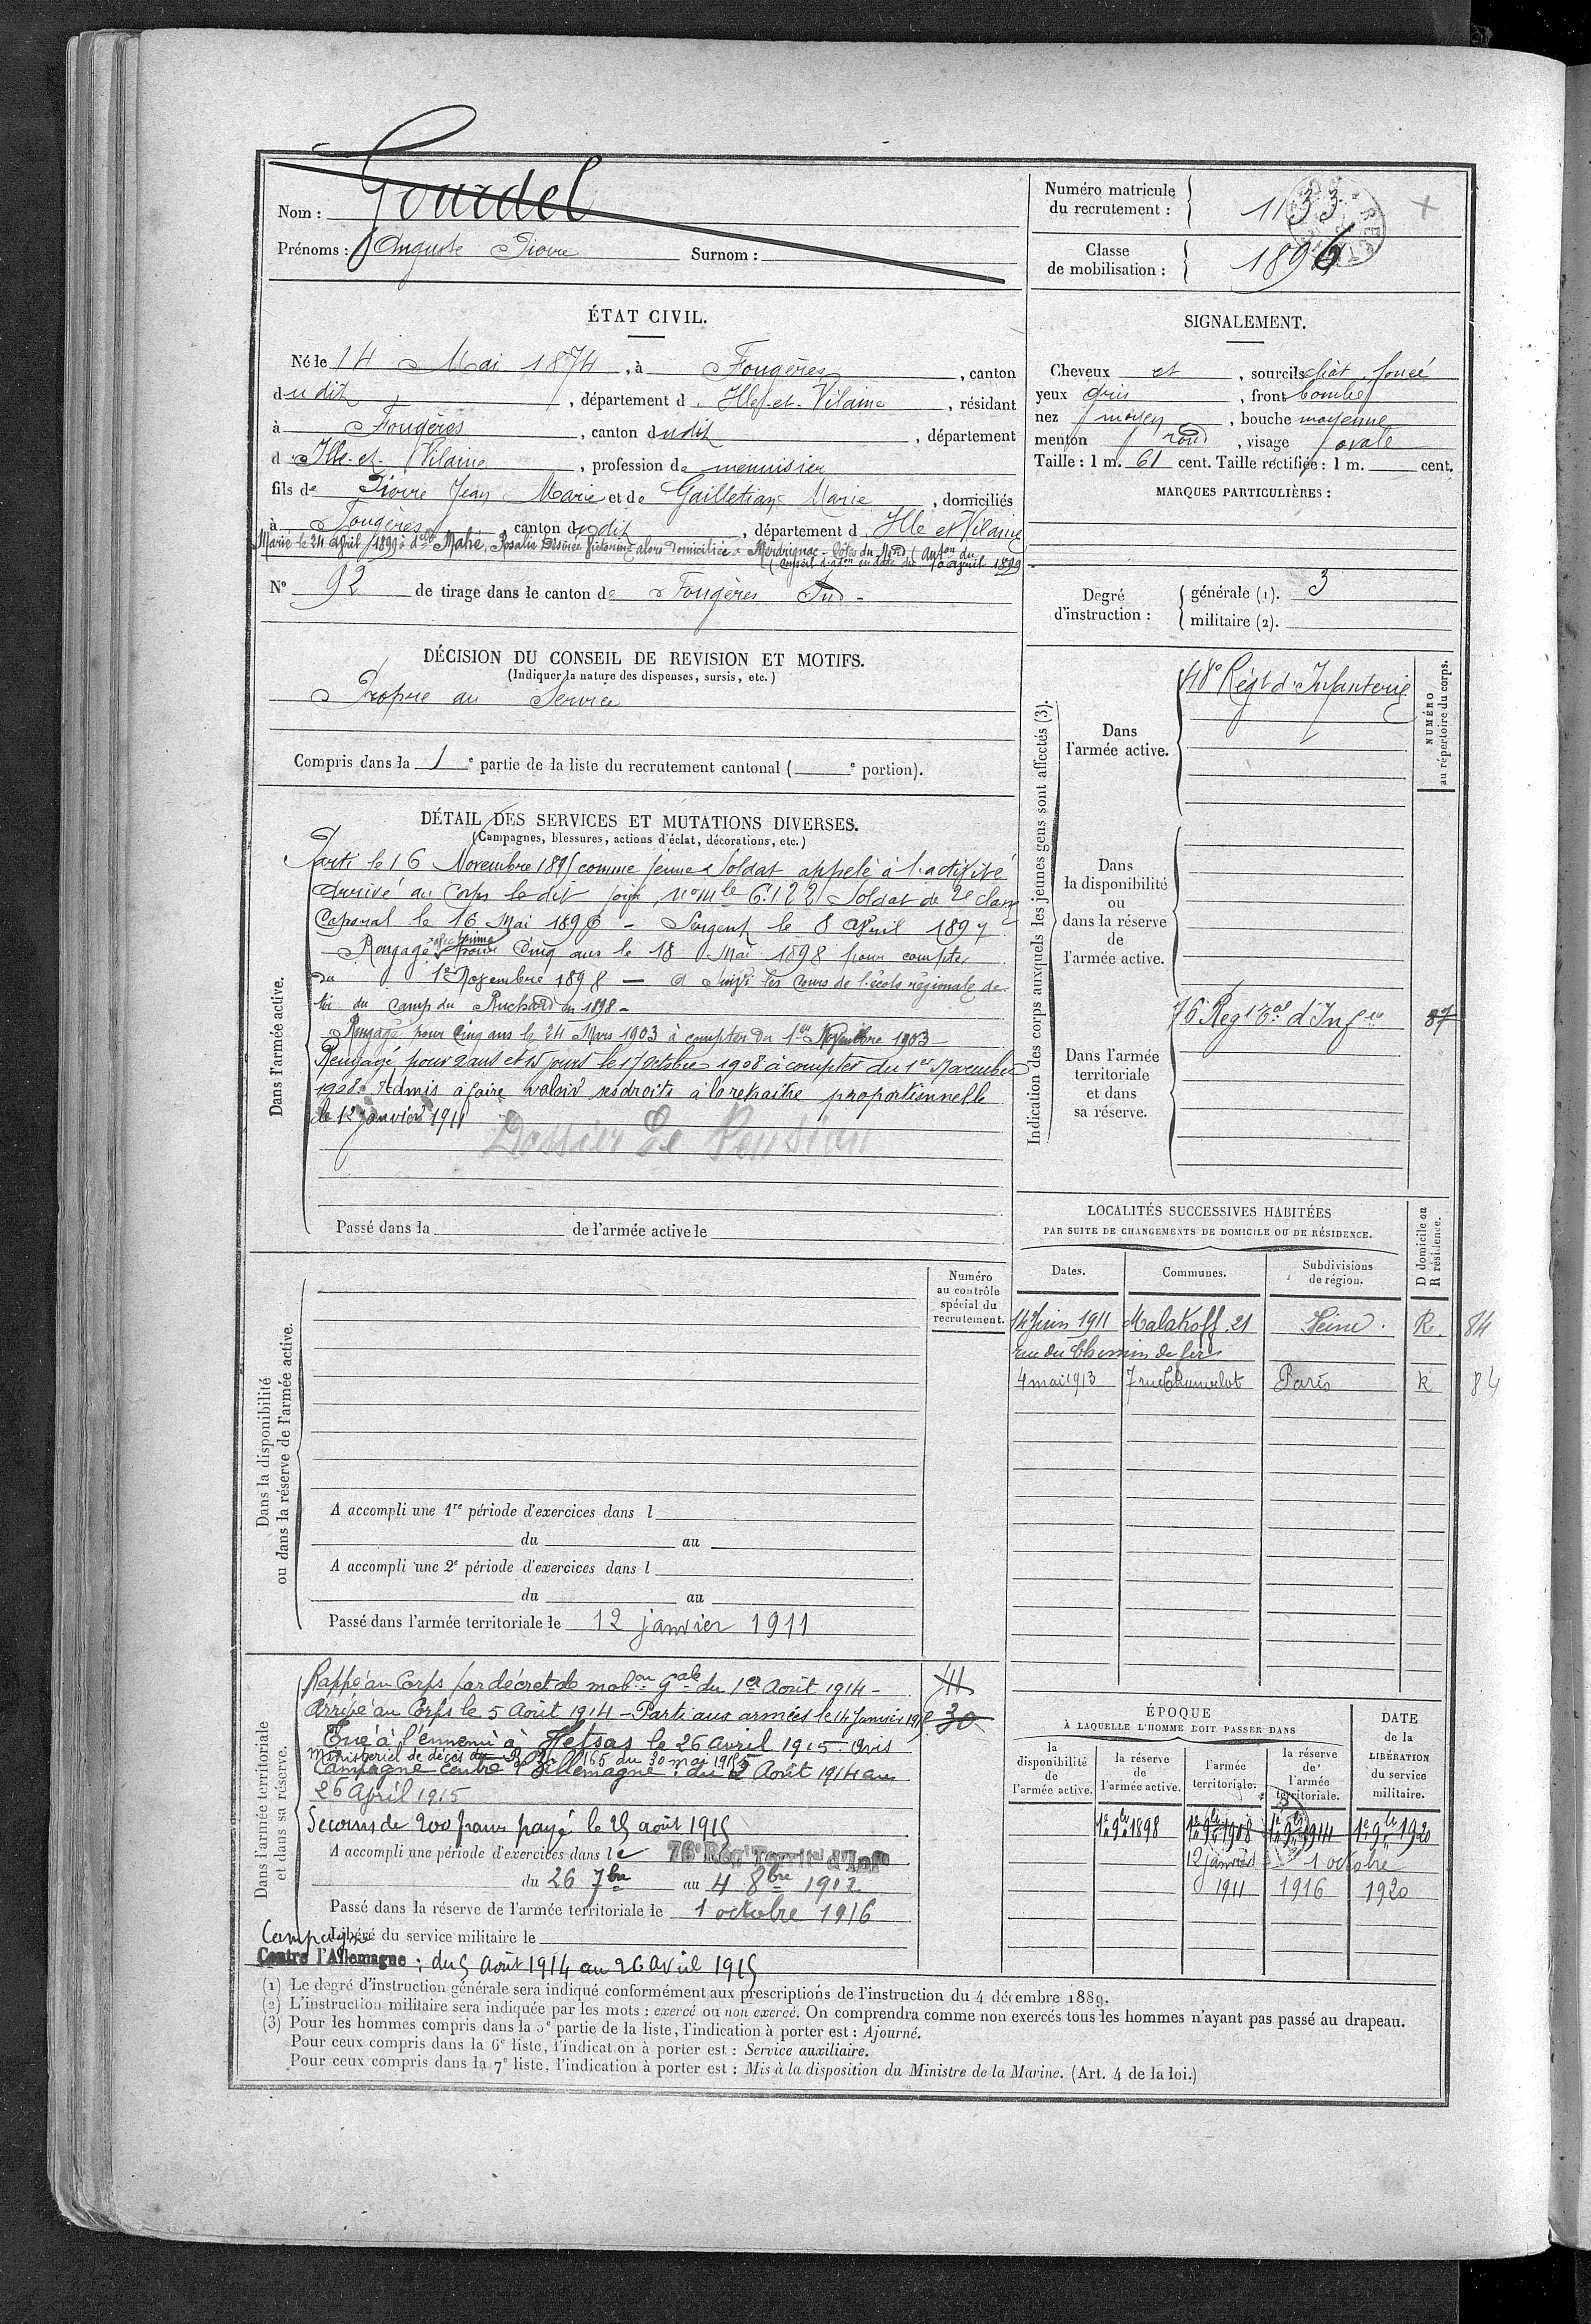 Nom : Gourdel
Prénoms : Auguste Pierre Surnom :
Numéro matricule du recrutement : 1133
Classe de mobilisation : 1896
ÉTAT CIVIL.
Né le 14 Mai 1874, à Fougères, canton
dudit, département d'Ille-et-Vilaine, résidant
à Fougères, canton dudit, département
d'Ille-et-Vilaine, profession de menuisier
fils de Pierre Jean Marie et de Marie, domiciliés
à Fougères, canton dudit, département d'Ille et Vilaine
Marié le 24 avril 1899 à delle Mahé, Rosalie Désirée Victorine alors domiciliée à Merdrignac - Côtes du Nord (auton du
Conseil d'adon en date du 10 avril 1899
N° 92 de tirage dans le canton de Fougères Sud -
SIGNALEMENT.
Cheveux et, sourcils chât. foncé
yeux gris, front bombé
nez moyen, bouche moyenne
menton rond, visage ovale
Taille : 1 m. 61 cent. Taille rectifiée : 1 m. cent.
MARQUES PARTICULIÈRES :
Degré d'instruction : générale (1). 3
militaire (2).
DÉCISION DU CONSEIL DE REVISION ET MOTIFS.
(Indiquer la nature des dispenses, sursis, etc.)
Propre au Service
Compris dans la 1e partie de la liste du recrutement cantonal ( e portion).
DÉTAIL DES SERVICES ET MUTATIONS DIVERSES.
(Campagnes, blessures, actions d'éclat, décorations, etc.)
Dans l'armée active.
Parti le 16 Novembre 1895 comme jeune Soldat appelé à l'activité
Arrivé au Corps le dit jour, no mle 6122 Soldat de 2e classe
Caporal le 16 Mai 1896 - Sergent le 8 Avril 1897
Rengagé avec prime pour Cinq ans le 18 Mai 1898 pour compter
du 1er Novembre 1898 - a suivi les cours de l'école régionale de
tir du camp du Ruchard en 1898 -
Rengagé pour Cinq ans le 24 Mars 1903 à compter du 1er Novembre 1903
Rengagé pour 2 ans et 15 jours le 17 octobre 1908 à compter du 1er Novembre
1908. Admis à faire valoir ses droits à la retraite proportionnelle
le 12 janvier 1911
Dossier de Pension
Passé dans la de l'armée active le
Indication des corps auxquels les jeunes gens sont affectés (3).
NUMÉRO au répertoire du corps.
Dans l'armée active.
48e Régt d'Infanterie
Dans la disponibilité ou dans la réserve de l'armée active.
Dans l'armée territoriale et dans sa réserve.
76 Regt Tal d'Infie 87
LOCALITÉS SUCCESSIVES HABITÉES
PAR SUITE DE CHANGEMENTS DE DOMICILE OU DE RÉSIDENCE.
D domicile ou R résidence.
Dates. Communes. Subdivisions de région.
14 Juin 1911 Malakoff. 21 Seine. R. 84
rue du Chemin de fer
4 mai 1913 7 rue Paris R 84
Dans la disponibilité ou dans la réserve de l'armée active.
Numéro au contrôle spécial du recrutement.
A accompli une 1re période d'exercices dans l
du au
A accompli une 2e période d'exercices dans l
du au
Passé dans l'armée territoriale le 12 janvier 1911
Dans l'armée territoriale et dans sa réserve.
Rappé au Corps par décret de mobon gale du 1er Août 1914 -
Arrivé au Corps le 5 Août 1914 - Parti aux armées le 14 Janvier 1915. 30
Tué à l'ennemi à Hetsas le 26 avril 1915. Avis
Ministeriel de décès 165 du 30 mai 1915
Campagne contre l'Allemagne : du 5 Août 1914 au
26 April 1915
Secours de 200 francs payé le 25 août 1915
A accompli une période d'exercices dans le 76e Régt Territal d'Infie
du 26 7bre au 4 8bre 1912
Passé dans la réserve de l'armée territoriale le 1 octobre 1916
Libéré du service militaire le
Campagne
Contre l'Allemagne : du 5 Août 1914 au 26 Avril 1915
ÉPOQUE
À LAQUELLE L'HOMME DOIT PASSER DANS
DATE de la LIBÉRATION du service militaire.
la disponibilité de l'armée active. la réserve de l'armée active. l'armée territoriale. la réserve de l'armée territoriale.
1er 9bre 1898 1er 9bre 1908 1er 9bre 1914 1er 9bre 1920
12 janvier 1 octobre
1911 1916 1920
(1) Le degré d'instruction générale sera indiqué conformément aux prescriptions de l'instruction du 4 décembre 1889.
(2) L'instruction militaire sera indiquée par les mots : exercé ou non exercé. On comprendra comme non exercés tous les hommes n'ayant pas passé au drapeau.
(3) Pour les hommes compris dans la 5e partie de la liste, l'indication à porter est : Ajourné.
Pour ceux compris dans la 6e liste, l'indication à porter est : Service auxiliaire.
Pour ceux compris dans la 7e liste, l'indication à porter est : Mis à la disposition du Ministre de la Marine. (Art. 4 de la loi.)